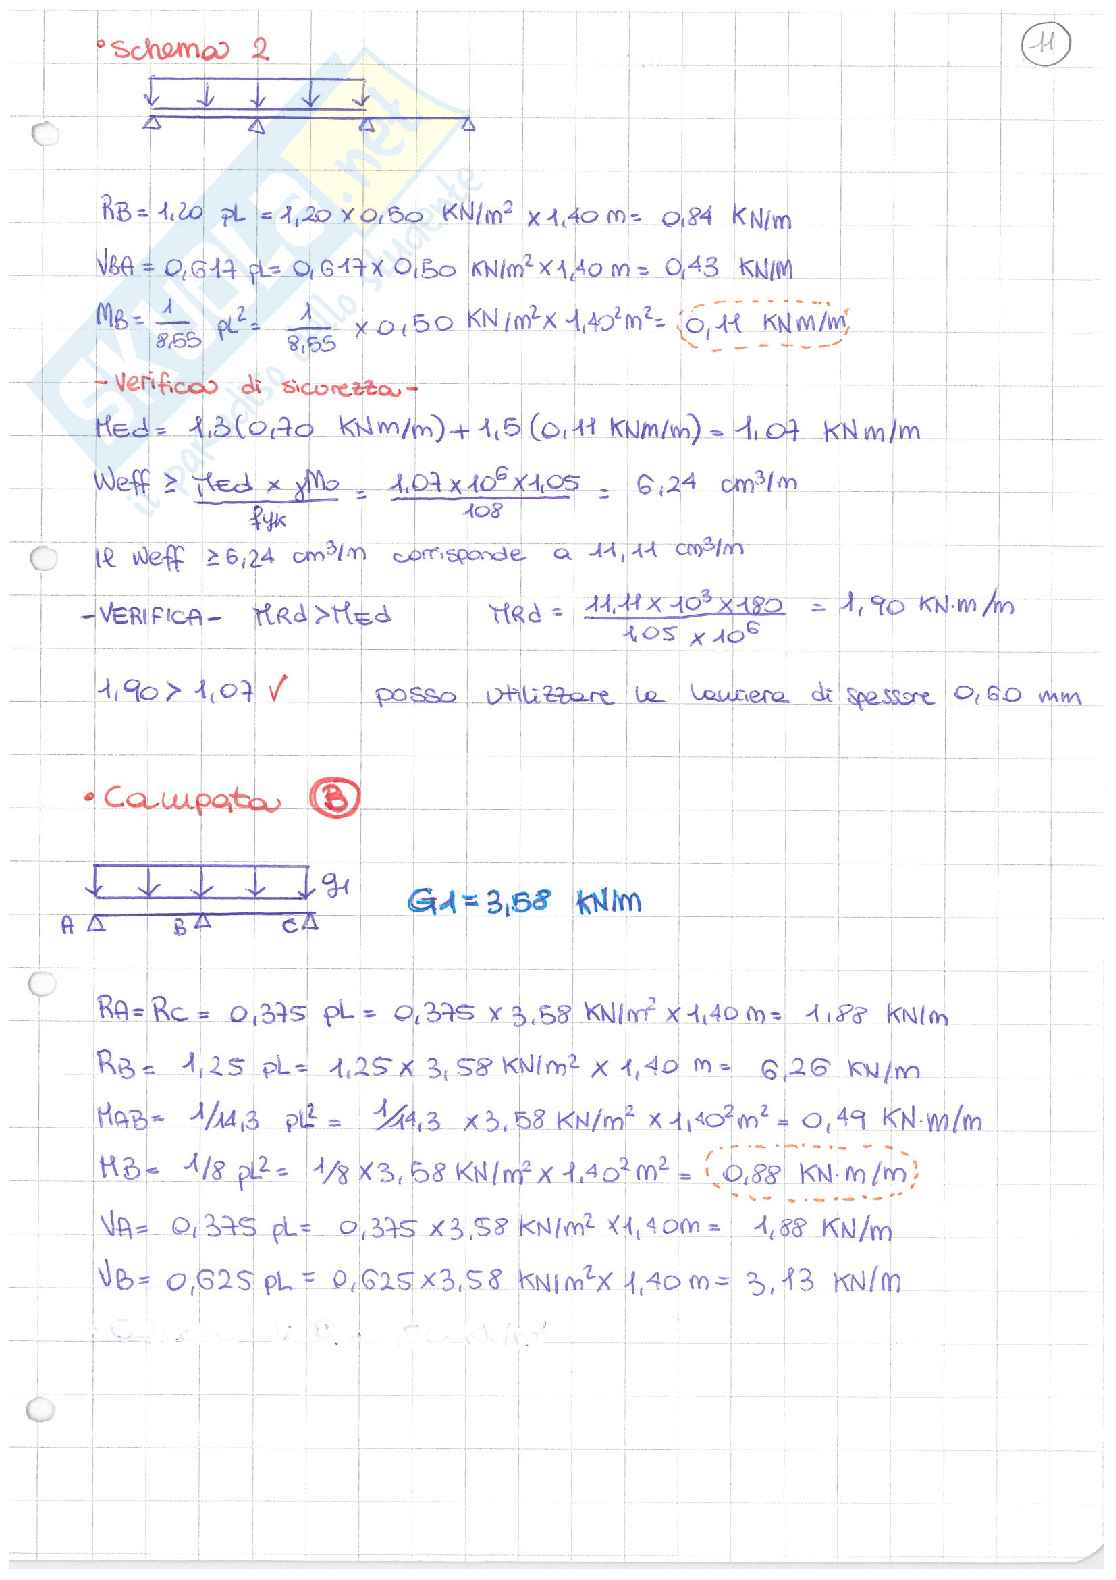 11
• Schema 2
RB = 1,20 pL = 1,20 x 0,50 KN/m² x 1,40 m = 0,84 KN/m
VBA = 0,617 pL = 0,617 x 0,50 KN/m² x 1,40 m = 0,43 KN/m
MB = 1/8,55 pL² = 1/8,55 x 0,50 KN/m² x 1,40² m² = 0,11 KNm/m
- Verifica di sicurezza -
MEd = 1,3(0,70 KNm/m) + 1,5(0,11 KNm/m) = 1,07 KNm/m
Weff ≥ MEd x γM0 / fyk = 1,07 x 10⁶ x 1,05 / 108 = 6,24 cm³/m
Il Weff ≥ 6,24 cm³/m corrisponde a 11,11 cm³/m
- VERIFICA - MRd > MEd MRd = 11,11 x 10³ x 180 / 1,05 x 10⁶ = 1,90 KN·m/m
1,90 > 1,07 ✓ posso utilizzare la lamiera di spessore 0,60 mm
• Campata B
g1
A B C
G1 = 3,58 KN/m
RA = RC = 0,375 pL = 0,375 x 3,58 KN/m² x 1,40 m = 1,88 KN/m
RB = 1,25 pL = 1,25 x 3,58 KN/m² x 1,40 m = 6,26 KN/m
MAB = 1/14,3 pL² = 1/14,3 x 3,58 KN/m² x 1,40² m² = 0,49 KN·m/m
MB = 1/8 pL² = 1/8 x 3,58 KN/m² x 1,40² m² = 0,88 KN·m/m
VA = 0,375 pL = 0,375 x 3,58 KN/m² x 1,40 m = 1,88 KN/m
VB = 0,625 pL = 0,625 x 3,58 KN/m² x 1,40 m = 3,13 KN/m
SKUOLA.net
il paradiso dello studente